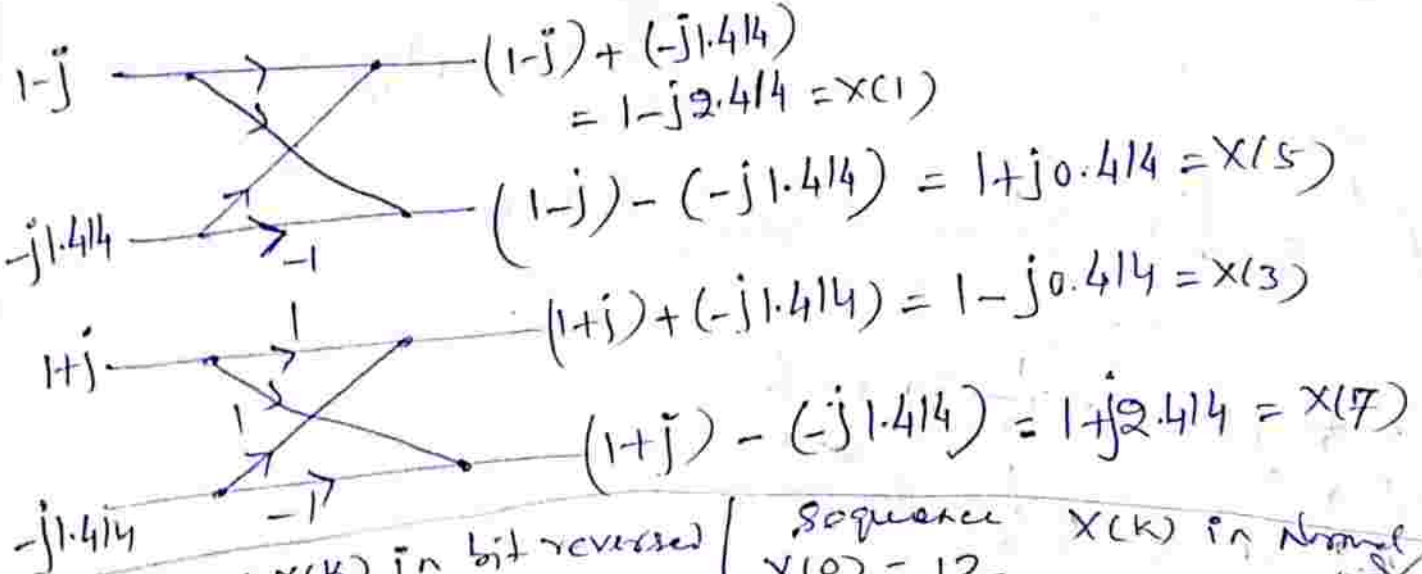 1-j
(1-j) + (-j1.414)
= 1-j2.414 = X(1)
-j1.414
-1
(1-j) - (-j1.414) = 1+j0.414 = X(5)
1+j
1
(1+j) + (-j1.414) = 1-j0.414 = X(3)
1
-j1.414
-1
(1+j) - (-j1.414) = 1+j2.414 = X(7)
X(K) in bit reversed
Sequence X(K) in Normal
X(0) = 12